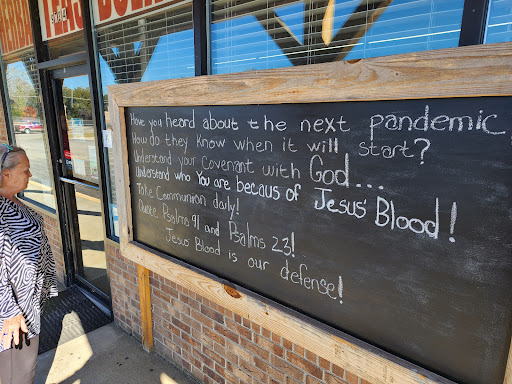 Have you heard about the next pandemic
How do they know when it will start?
Understand your Covenant with God...
Understand who You are becaus of Jesus' Blood!
Take Communion daily!
Quote Psalms 91 and Psalms 23!
Jesus' Blood is our defense!